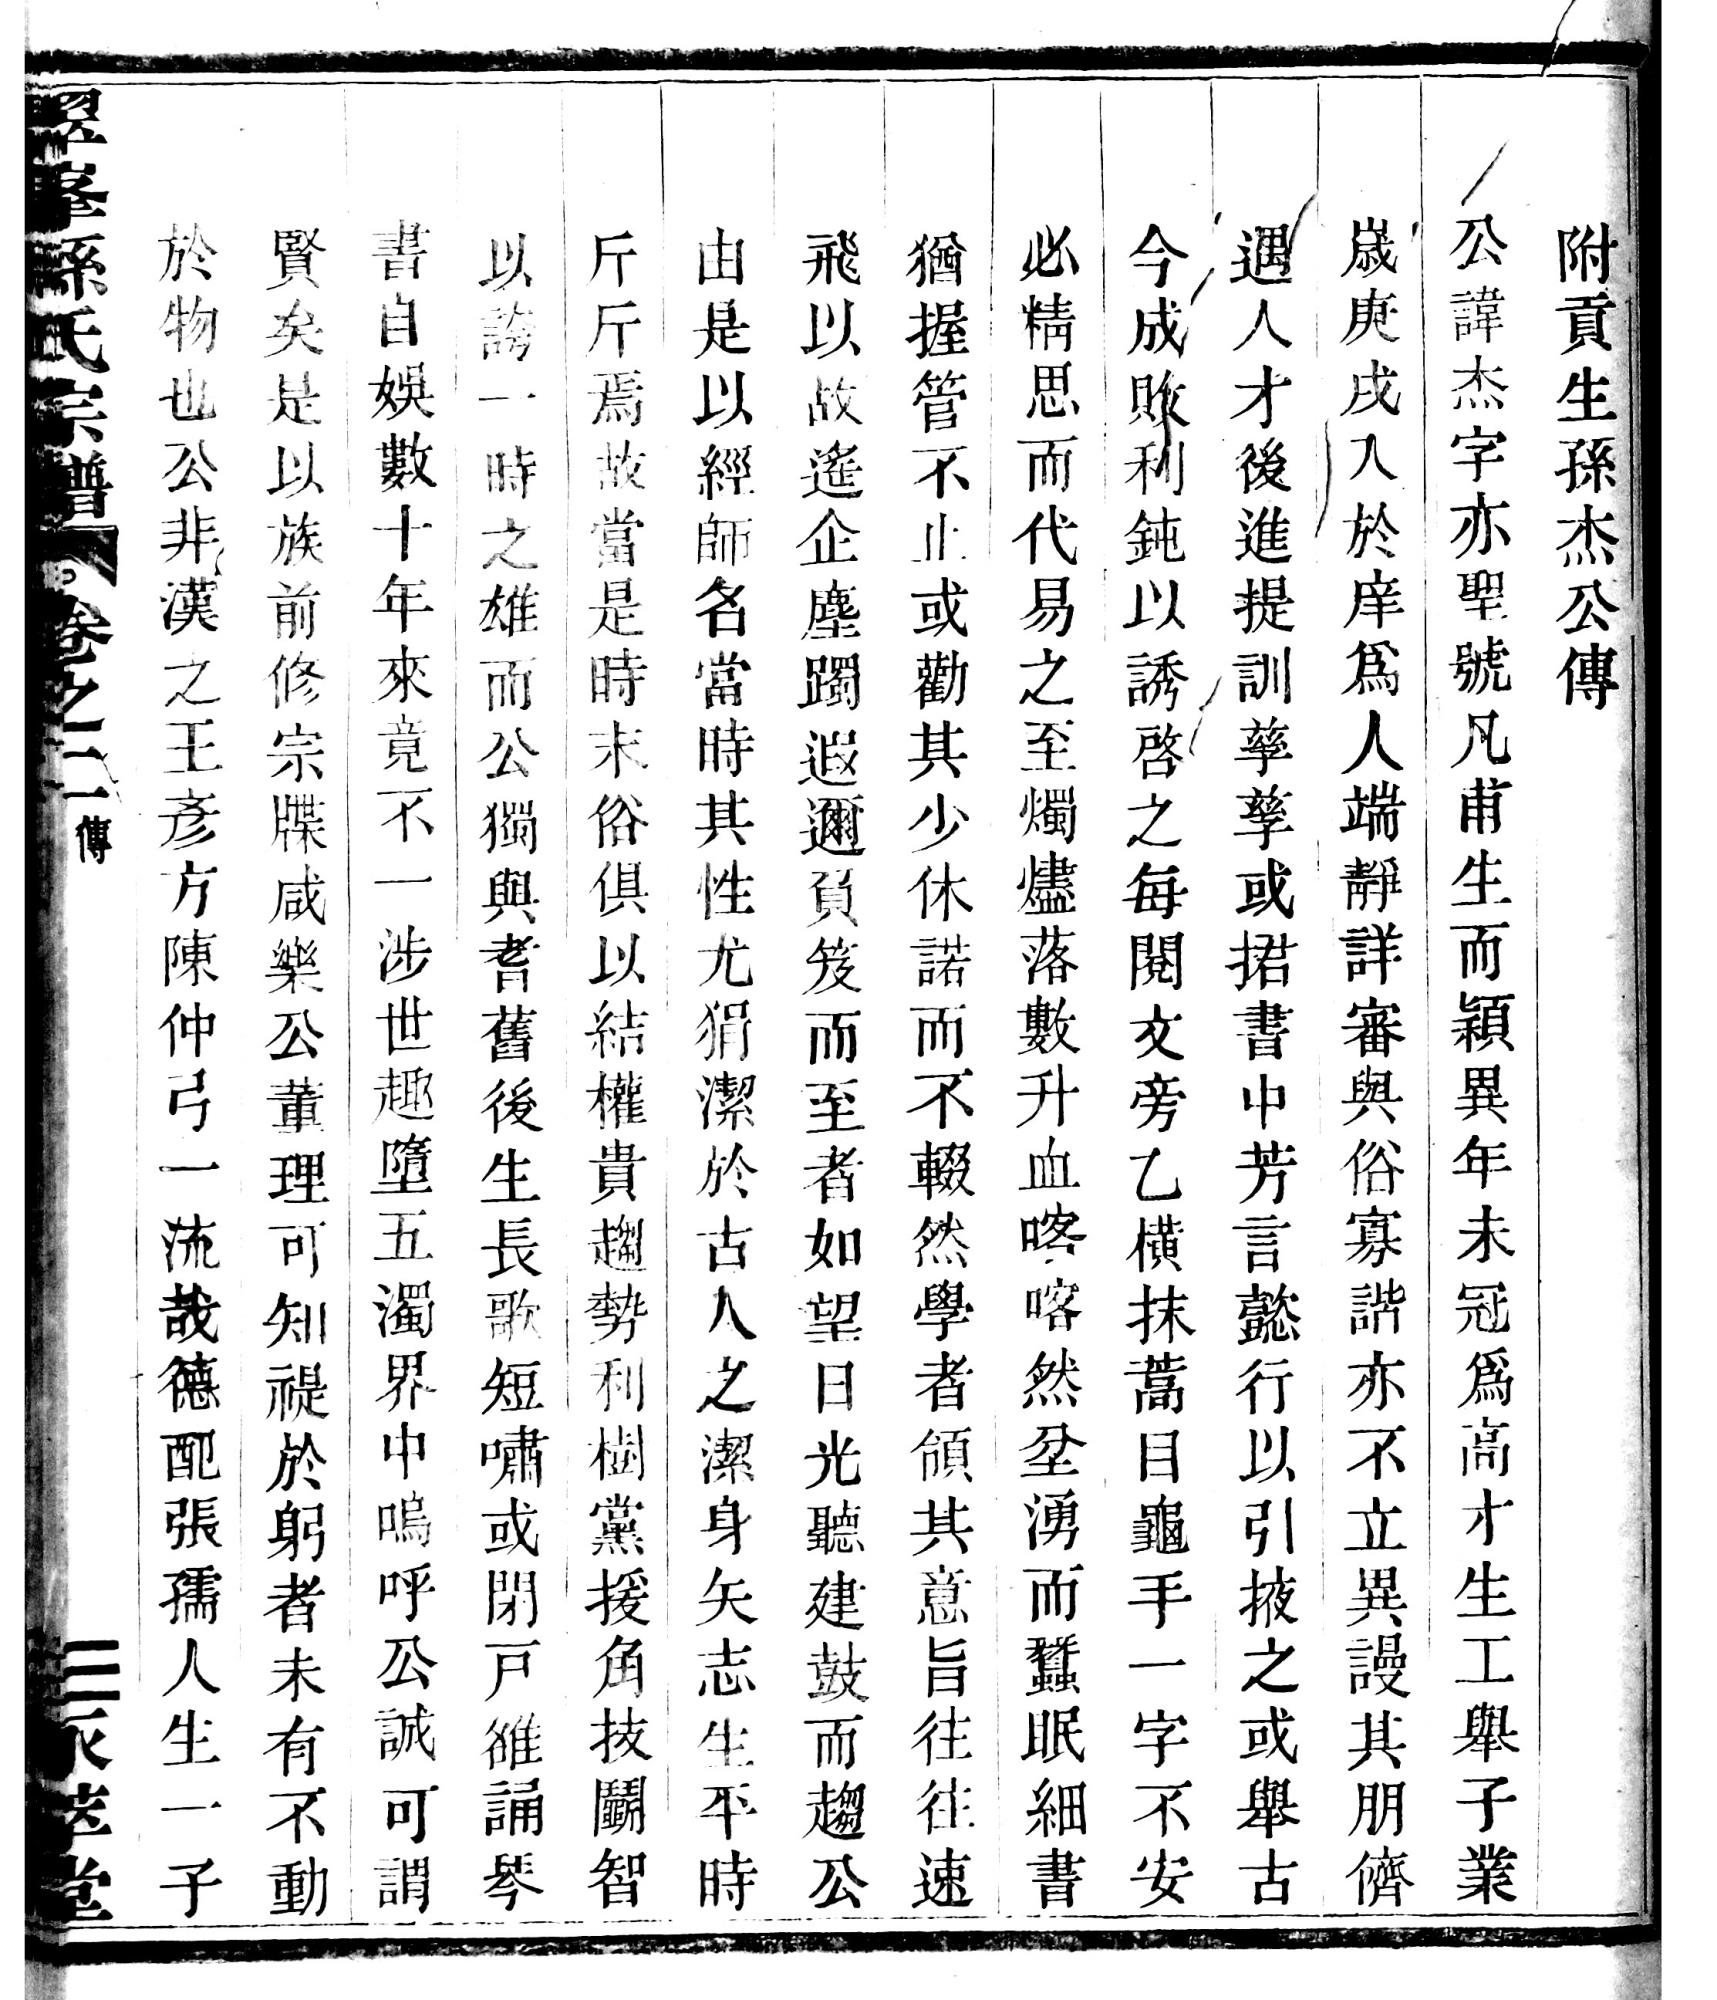 附貢生孫杰公傳
公諱杰字亦聖號凡甫生而穎異年未冠爲高才生工舉子業
歲庚戌入於庠爲人端靜詳審與俗寡諧亦不立異謾其朋儕
遇人才後進提訓孳孳或捃書中芳言懿行以引掖之或舉古
今成敗利鈍以誘啓之每閱文旁乙橫抹蒿目龜手一字不安
必精思而代易之至燭燼落數升血喀喀然坌湧而蠶眠細書
猶握管不止或勸其少休諾而不輟然學者頷其意旨往往速
飛以故遙企塵躅遐邇負笈而至者如望日光聽建鼓而趨公
由是以經師名當時其性尤狷潔於古人之潔身矢志生平時
斤斤焉故當是時末俗俱以結權貴趨勢利樹黨援角技鬬智
以誇一時之雄而公獨與耆舊後生長歌短嘯或閉戸雒誦琴
書自娛數十年來竟不一涉世趣墮五濁界中嗚呼公誠可謂
賢矣是以族前修宗牒咸樂公董理可知禔於躬者未有不動
於物也公非漢之王彥方陳仲弓一流哉德配張孺人生一子
翠峯孫氏宗譜 卷之二 傳 三 永萃堂